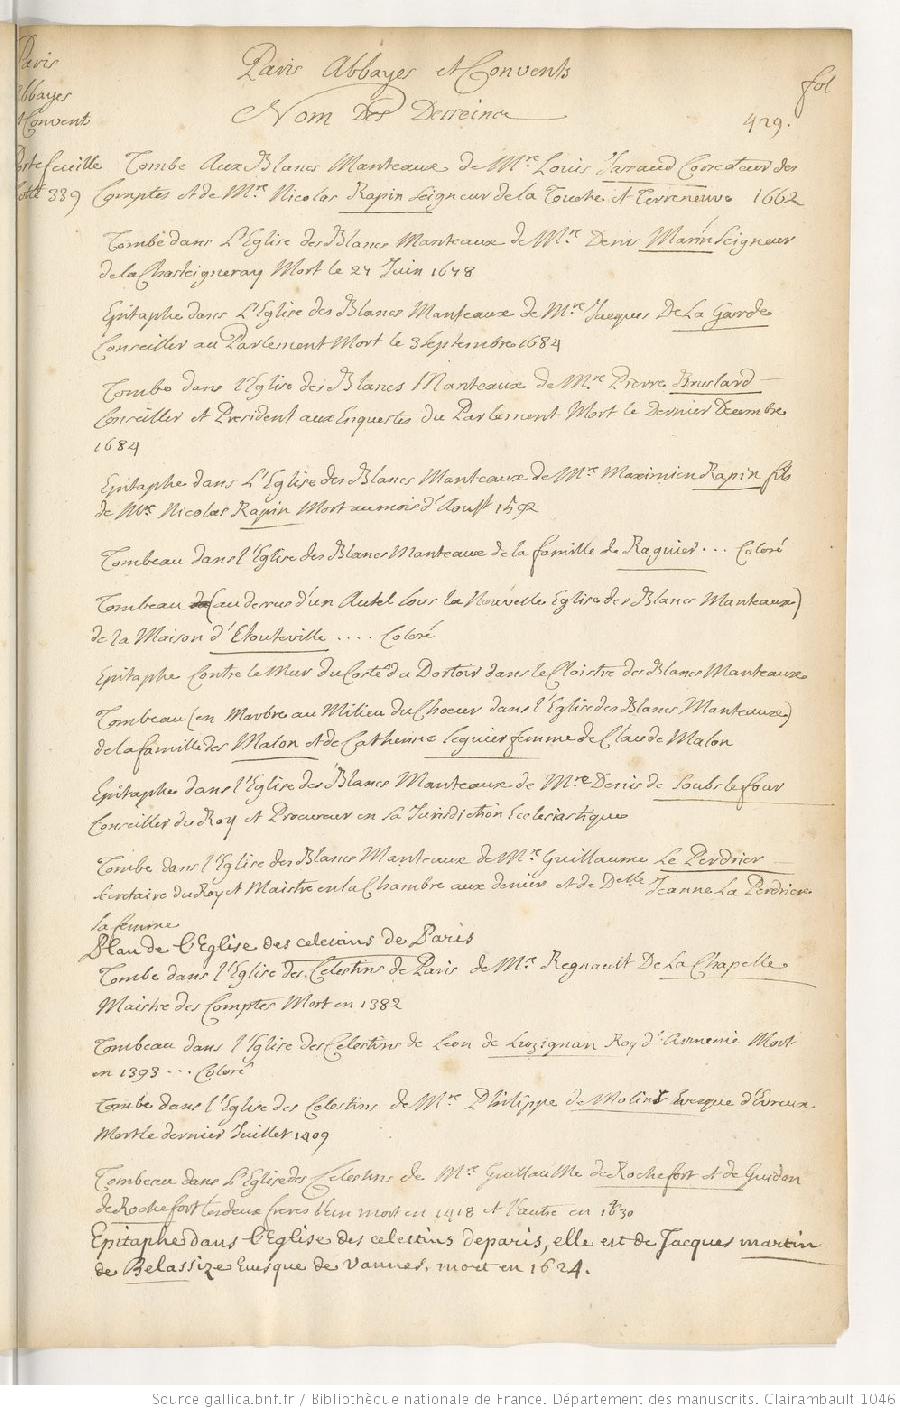 Paris
Abbayes
et Convent
Portefeuille
339
Paris Abbayes et Convents
Nom Des Desseins
fol
429.
Tombe Aux Blancs Manteaux de Mre Louis Tarraud Correcteur des
Comptes et de Mre Nicolas Rapin Seigneur de la Touche et Terreneuve 1662
Tombe dans L'Eglise des Blancs Manteaux de Mre Denis Marin Seigneur
de la Chasteigneray Mort le 27 Juin 1678
Epitaphe dans L'Eglise des Blancs Manteaux de Mre Jacques De La Garde
Conseiller au Parlement Mort le 3 Septembre 1684
Tombe dans l'Eglise des Blancs Manteaux de Mre Pierre Bruslard
Conseiller et President aux Enquestes du Parlement Mort le Dernier Decembre
1684
Epitaphe dans L'Eglise des Blancs Manteaux de Mre Maximien Rapin fils
de Mre Nicolas Rapin Mort au mois d'Aoust 1592
Tombeau dans l'Eglise des Blancs Manteaux de la famille de Raguier ... Coloré
Tombeau (au dessus d'un Autel sous la Nouvelle Eglise des Blancs Manteaux)
de la Maison d'Etouteville .... Coloré
Epitaphe Contre le Mur du Costé du Dortoir dans le Cloistre des Blancs Manteaux
Tombeau (en Marbre au Milieu du Choeur dans l'Eglise des Blancs Manteaux)
de la famille des Malon et de Catherine Seguier femme de Claude Malon
Epitaphe dans l'Eglise des Blancs Manteaux de Mre Denis de Soubs le four
Conseiller du Roy et Procureur en sa Jurisdiction Ecclesiastique
Tombe dans l'Eglise des Blancs Manteaux de Mre Guillaume Le Perdrier
Secretaire du Roy et Maistre en la Chambre aux deniers et de Delle Jeanne La Perdriere
sa femme
Plan de l'Eglise des celestins de Paris
Tombe dans l'Eglise des Celestins de Paris de Mre Regnault De La Chapelle
Maistre des Comptes Mort en 1382
Tombeau dans l'Eglise des Celestins de Leon de Luzignan Roy d'Armenie Mort
en 1393 ... Coloré
Tombe dans l'Eglise des Celestins de Mre Philippe de Molins Evesque d'Evreux
Mort le dernier Juillet 1409
Tombeau dans L'Eglise des Celestins de Mre Guillaume de Rochefort et de Guidon
de Rochefort les deux freres l'un mort en 1418 et l'autre en
Epitaphe dans l'Eglise des celestins de paris, elle est de Jacques martin
de Belassize Evesque de vannes, mort en 1624.
Source gallica.bnf.fr / Bibliothèque nationale de France. Département des manuscrits. Clairambault 1046